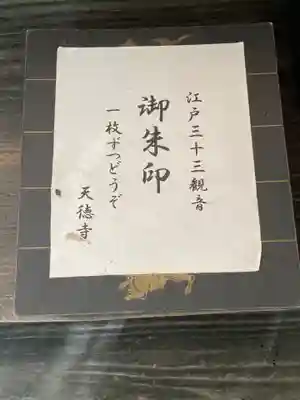 江戸三十三觀音
御朱印
一枚ずつどうぞ
天徳寺